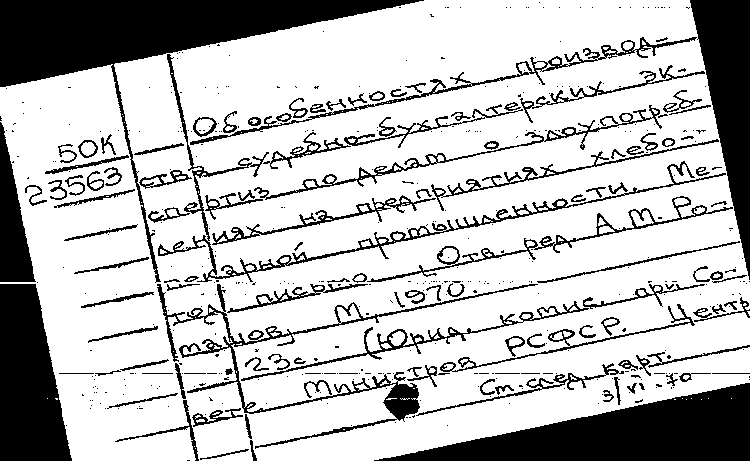 Об особенностях производ-
50К
ства судебно-бухгалтерских эк-
23563
спертиз по делам о злоупотреб-
лениях на предприятиях хлебо-
пекарной промышленности. Ме-
тод. письмо. Отв. ред. А.М. Ро-
машов, М., 1970.
23с. (Юрид. комис. при Со-
вете Министров РСФСР. Центр
См. след. карт.
3/VI-70